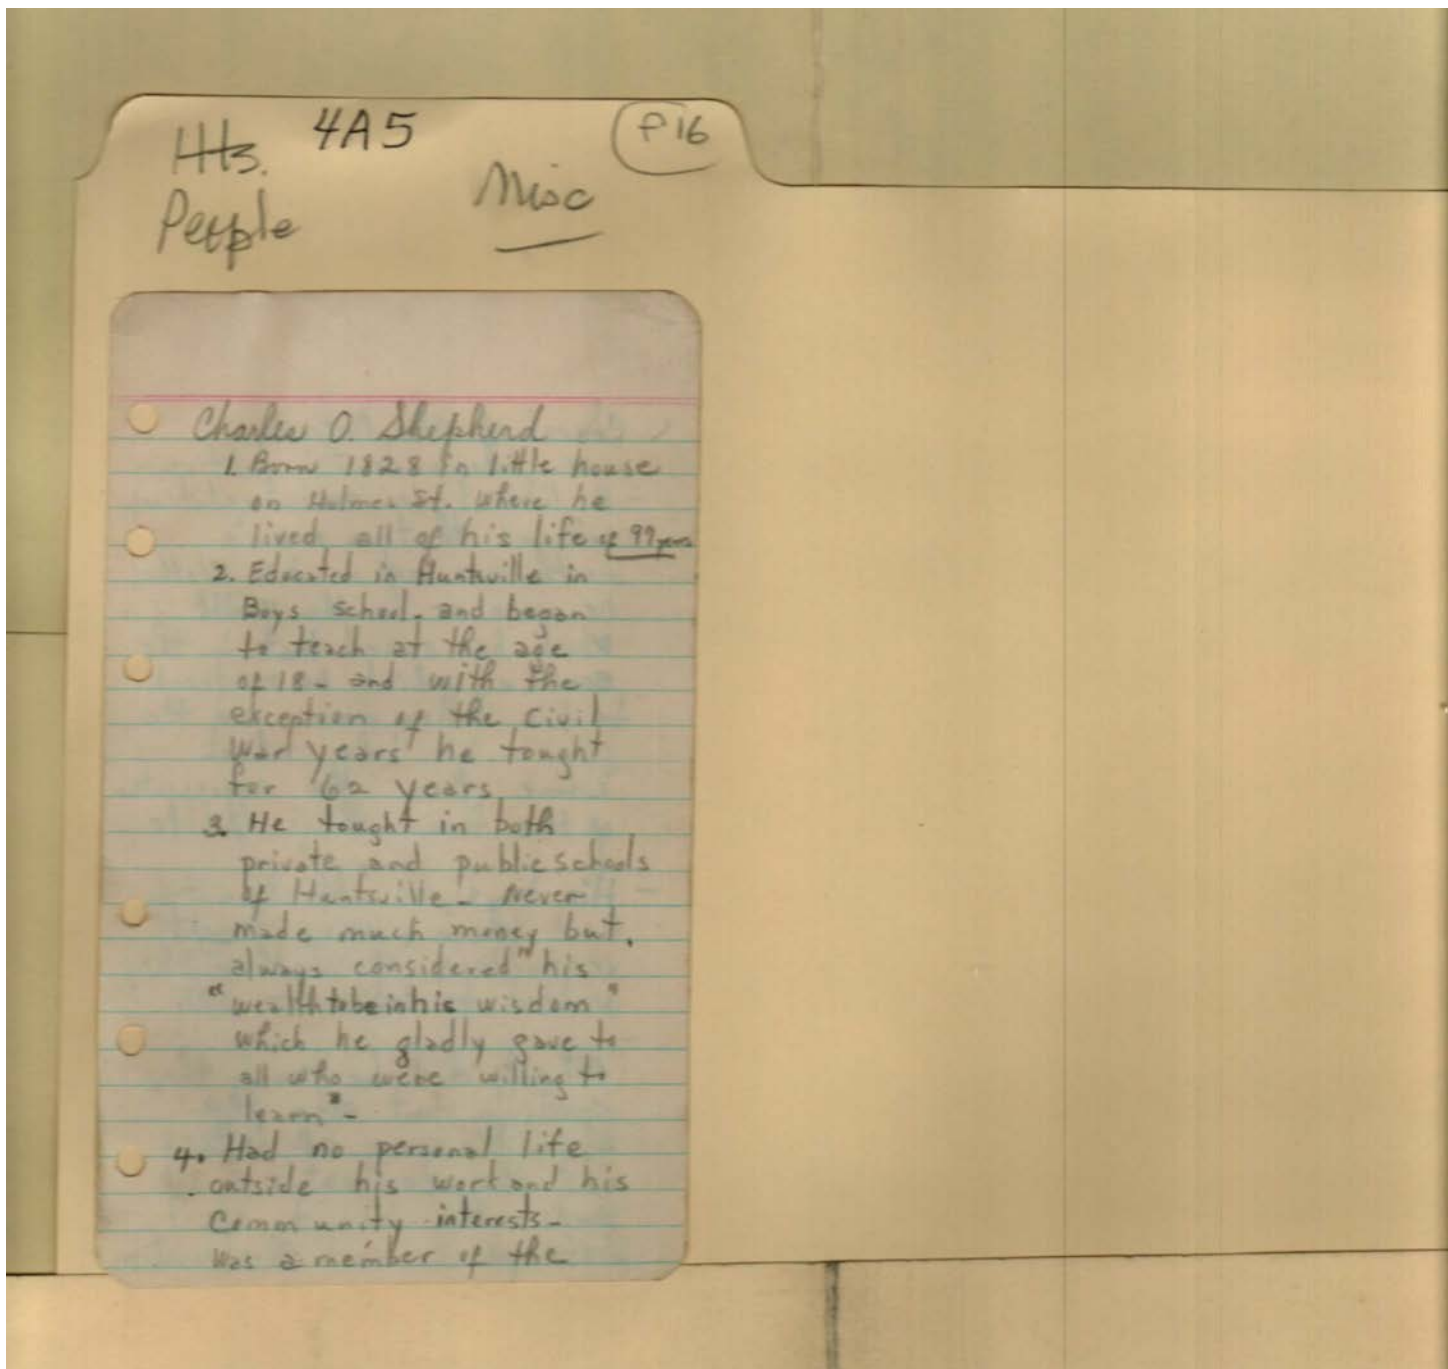 4A5
P16
Hts.
Misc
People
Charles O. Shepherd
1. Born 1828 in little house
on Holmes St. where he
lived all of his life of 99 years
2. Educated in Huntsville in
Boys school. and began
to teach at the age
of 18 - and with the
exception of the Civil
War years he tought
for 62 years
3. He tought in both
private and public schools
of Huntsville - Never
made much money but.
always considered "his
"wealth to be in his wisdom"
which he gladly gave to
all who were willing to
learn" -
4. Had no personal life
outside his work and his
Community interests -
Was a member of the